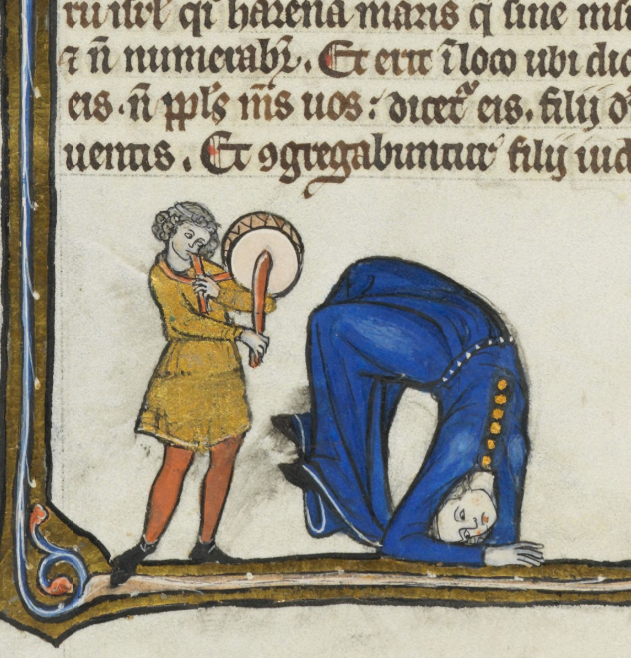 ru isrl̄ qi harena maris q̄ sine msu
⁊ n̄ numerabr̄. Et erit ī loco ubi dic
eis. n̄ ppl̄s m̄s uos: dicet᷑ eis. filij d
uentis. Et ꝯgregabuntur filij iud